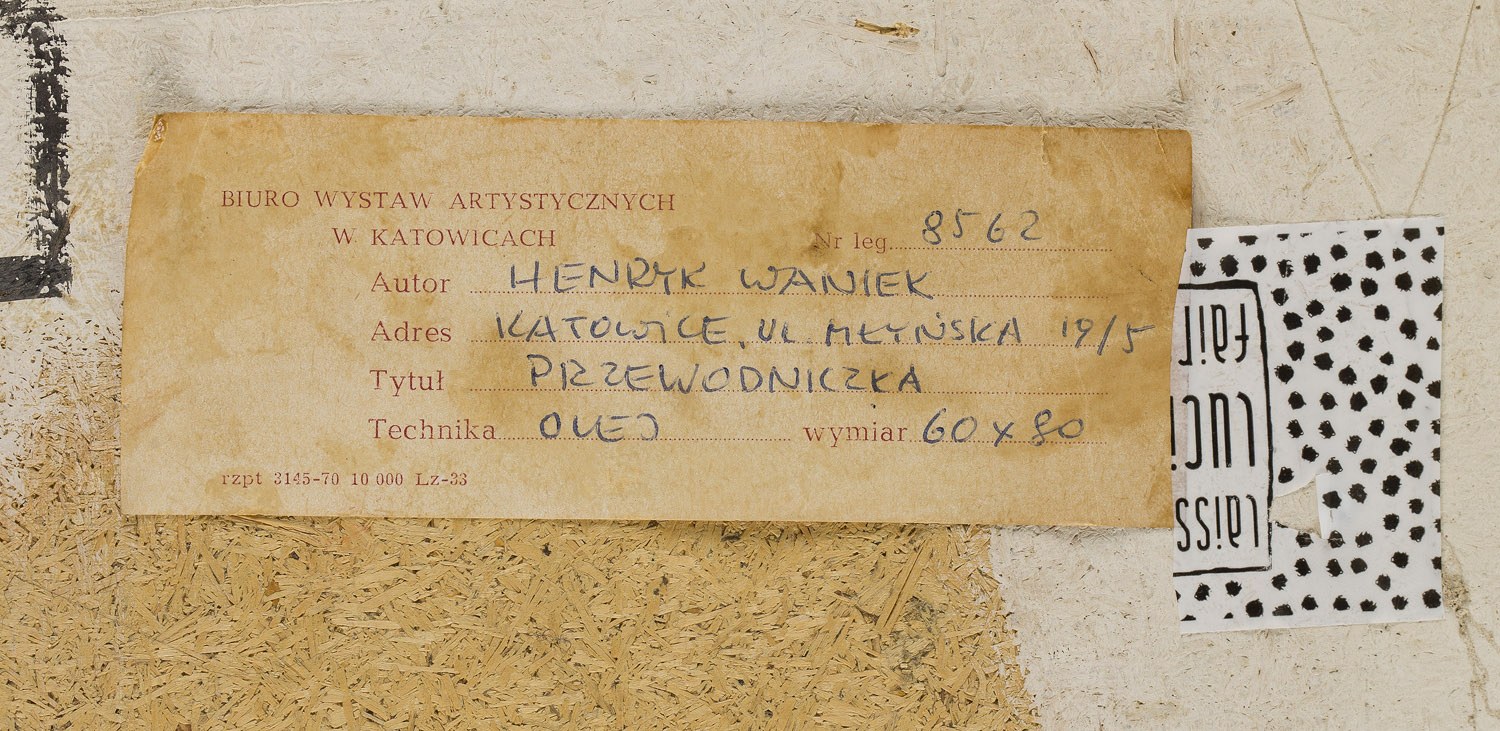 BIURO WYSTAW ARTYSTYCZNYCH
W KATOWICACH
Nr leg. 8562
Autor HENRYK WANIEK
Adres KATOWICE, UL. MŁYŃSKA 19/5
Tytuł PRZEWODNICZKA
Technika OLEJ wymiar 60 x 80
rzpt 3145-70 10 000 Lz-33
fair